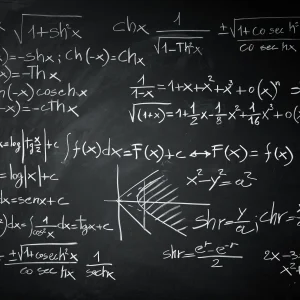 √1+sh²x
chx 1/√1-Th²x
±√1+cosec h²x / cosec hx
)=-shx; ch(-x)=Chx
x)=-Thx
h(-x) cosechx
-x)=-cThx
1/1-x=1+x+x²+x³+o(x)ⁿ
√(1+x)=1+1/2x-1/8x²+1/16x³+o(
x=log|tg x/2|+c
∫f(x)dx=F(x)+c ↔ F(x)=f(x)
=log|x|+c
x²-y²=a²
dx=senx+c
shr=y/a; chr=
²)dx=∫1/cos²x dx=tgx+c
±√1+cosech²x / cosec hx
1/sechx
shr=eʳ-e⁻ʳ/2
2x-3
x²+